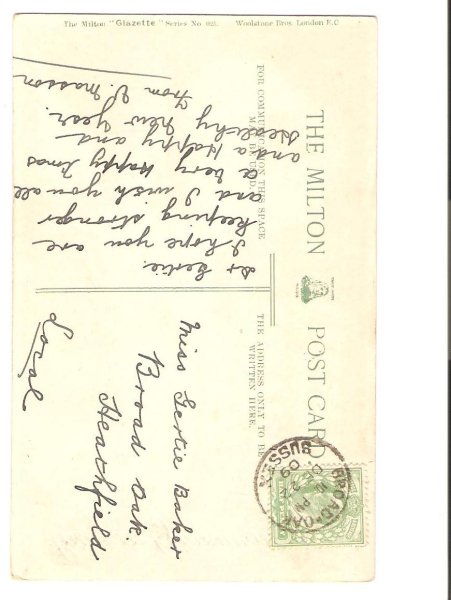 The Milton "Glazette" Series No. 021. Woolstone Bros. London E.C
THE MILTON POST CARD
FOR COMMUNICATION THIS SPACE
MAY BE USED.
THE ADDRESS ONLY TO BE
WRITTEN HERE.
BROAD OAK
PM
DE 24
09
SUSSEX
Dr Gertie.
I hope you are
keeping stronger
and I wish you all
a very Happy Xmas
and a Happy and
Healthy New Year.
From V. Masson
Miss Gertie Baker
Broad Oak
Heathfield
Local